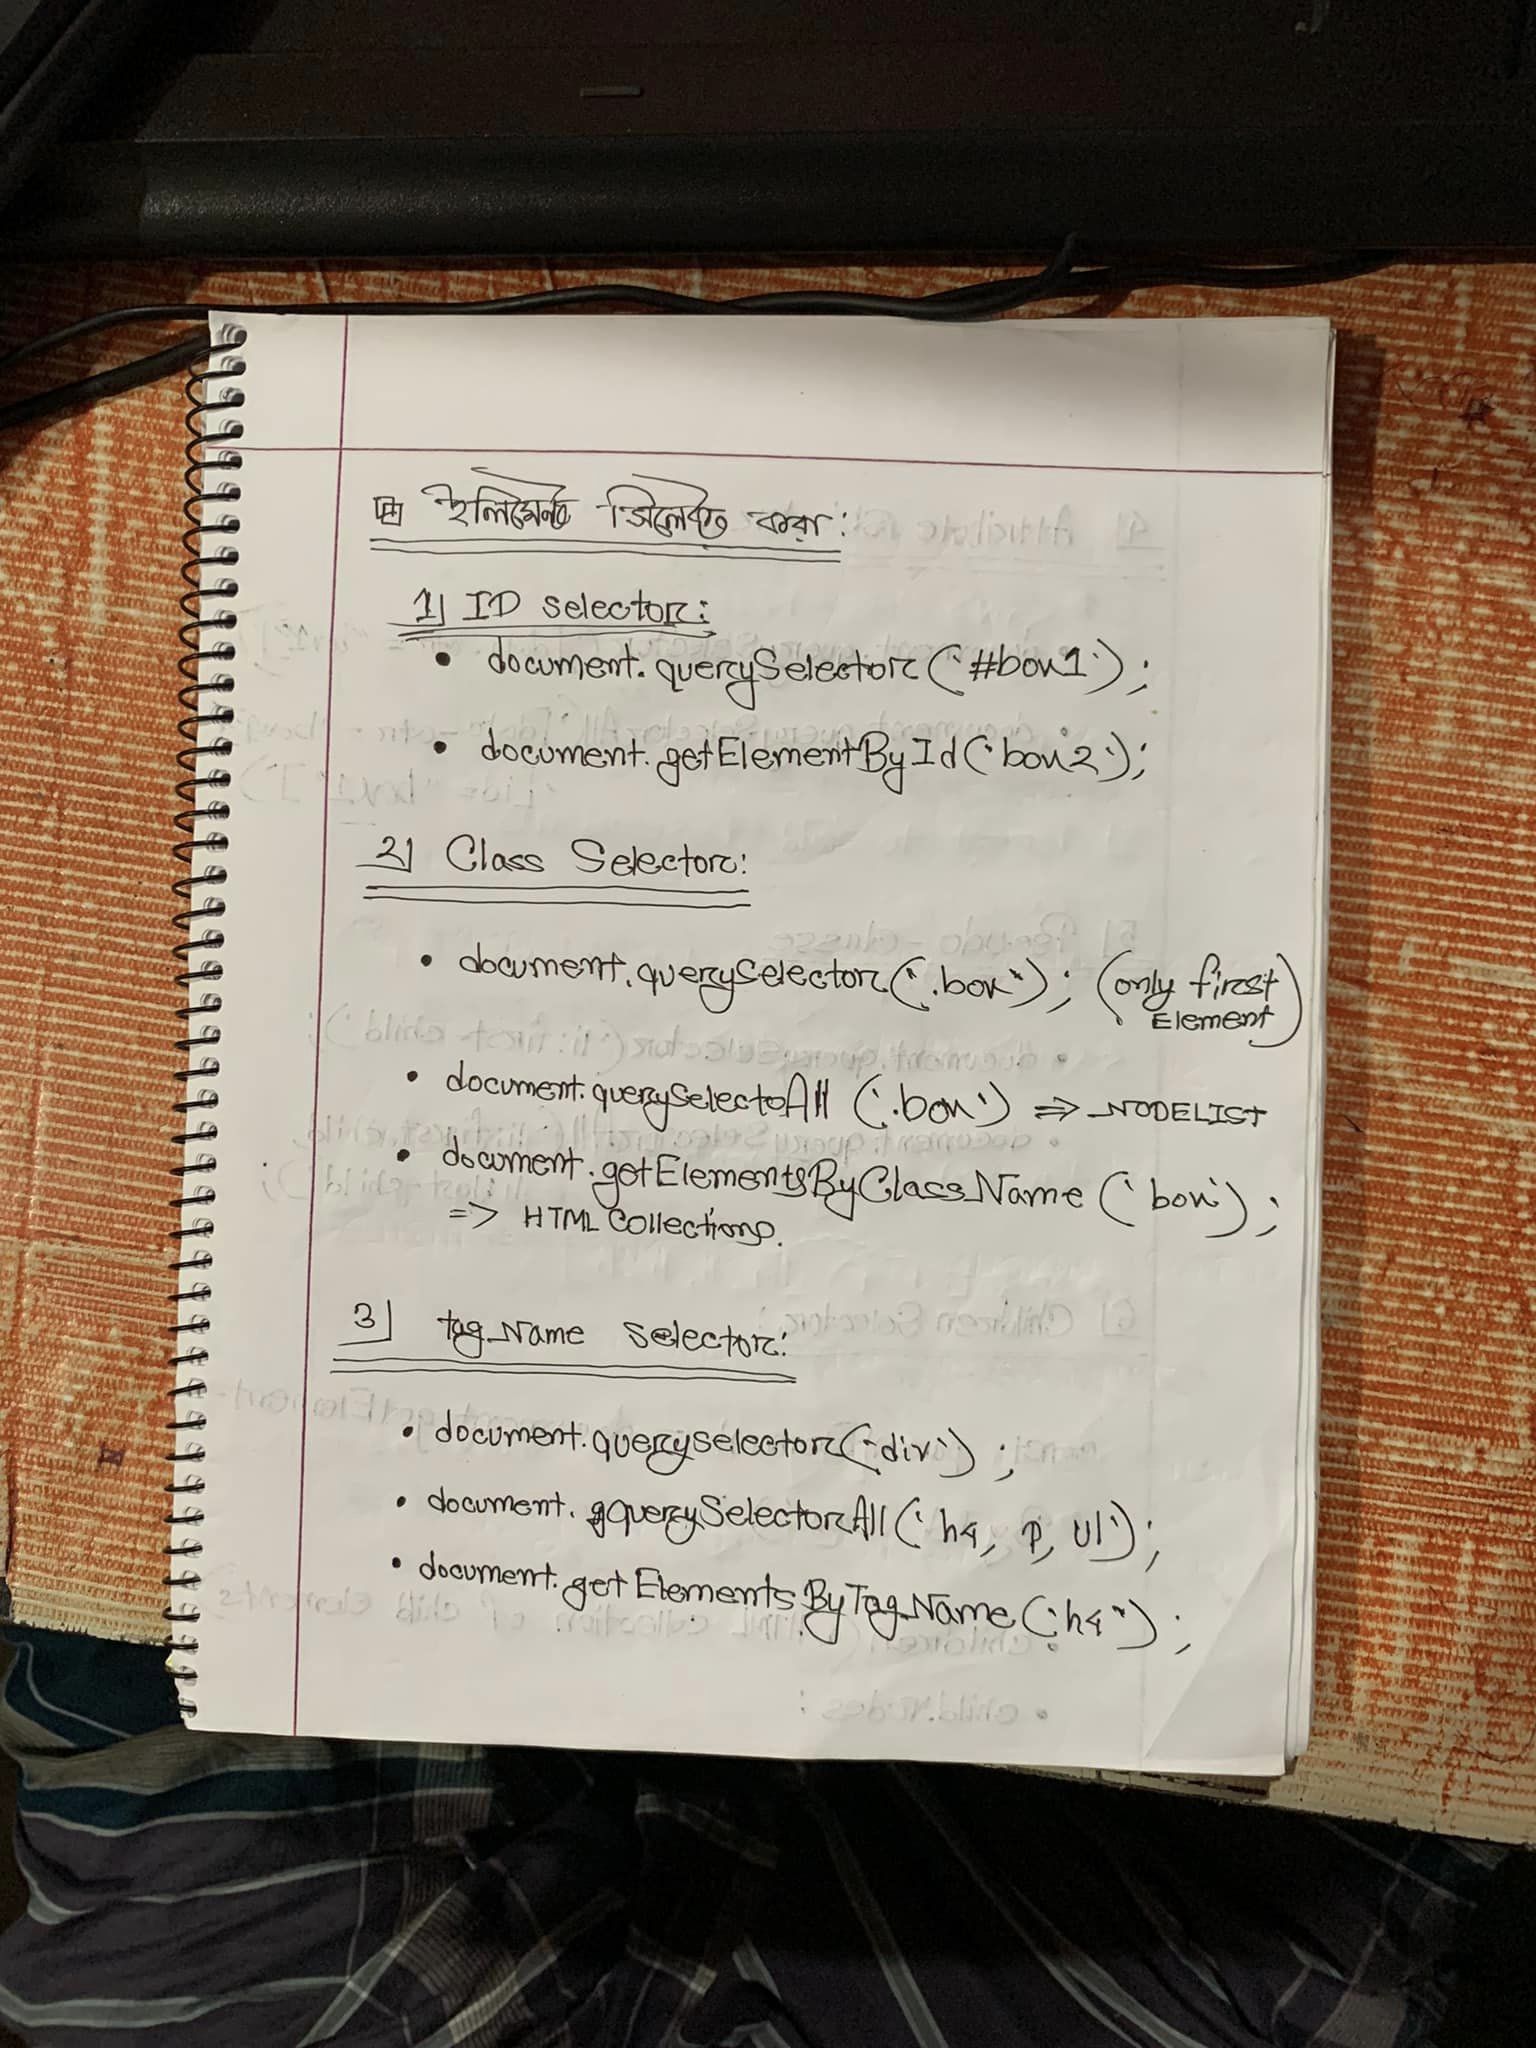 ইলিমেন্ট সিলেক্ট করা:
1) ID selector:
• document.querySelector('#box1');
• document.getElementById('box2');
2) Class Selector:
• document.queryselector('.box"); (only first
Element)
• document.queryselectoAll ('.box') => NODELIST
• document.getElementsByClassName ('box');
=> HTML Collections.
3) tagName selector:
• document.queryselector('div') ;
• document.querySelectorAll('h4, p, ul');
• document.getElementsByTagName('h4");